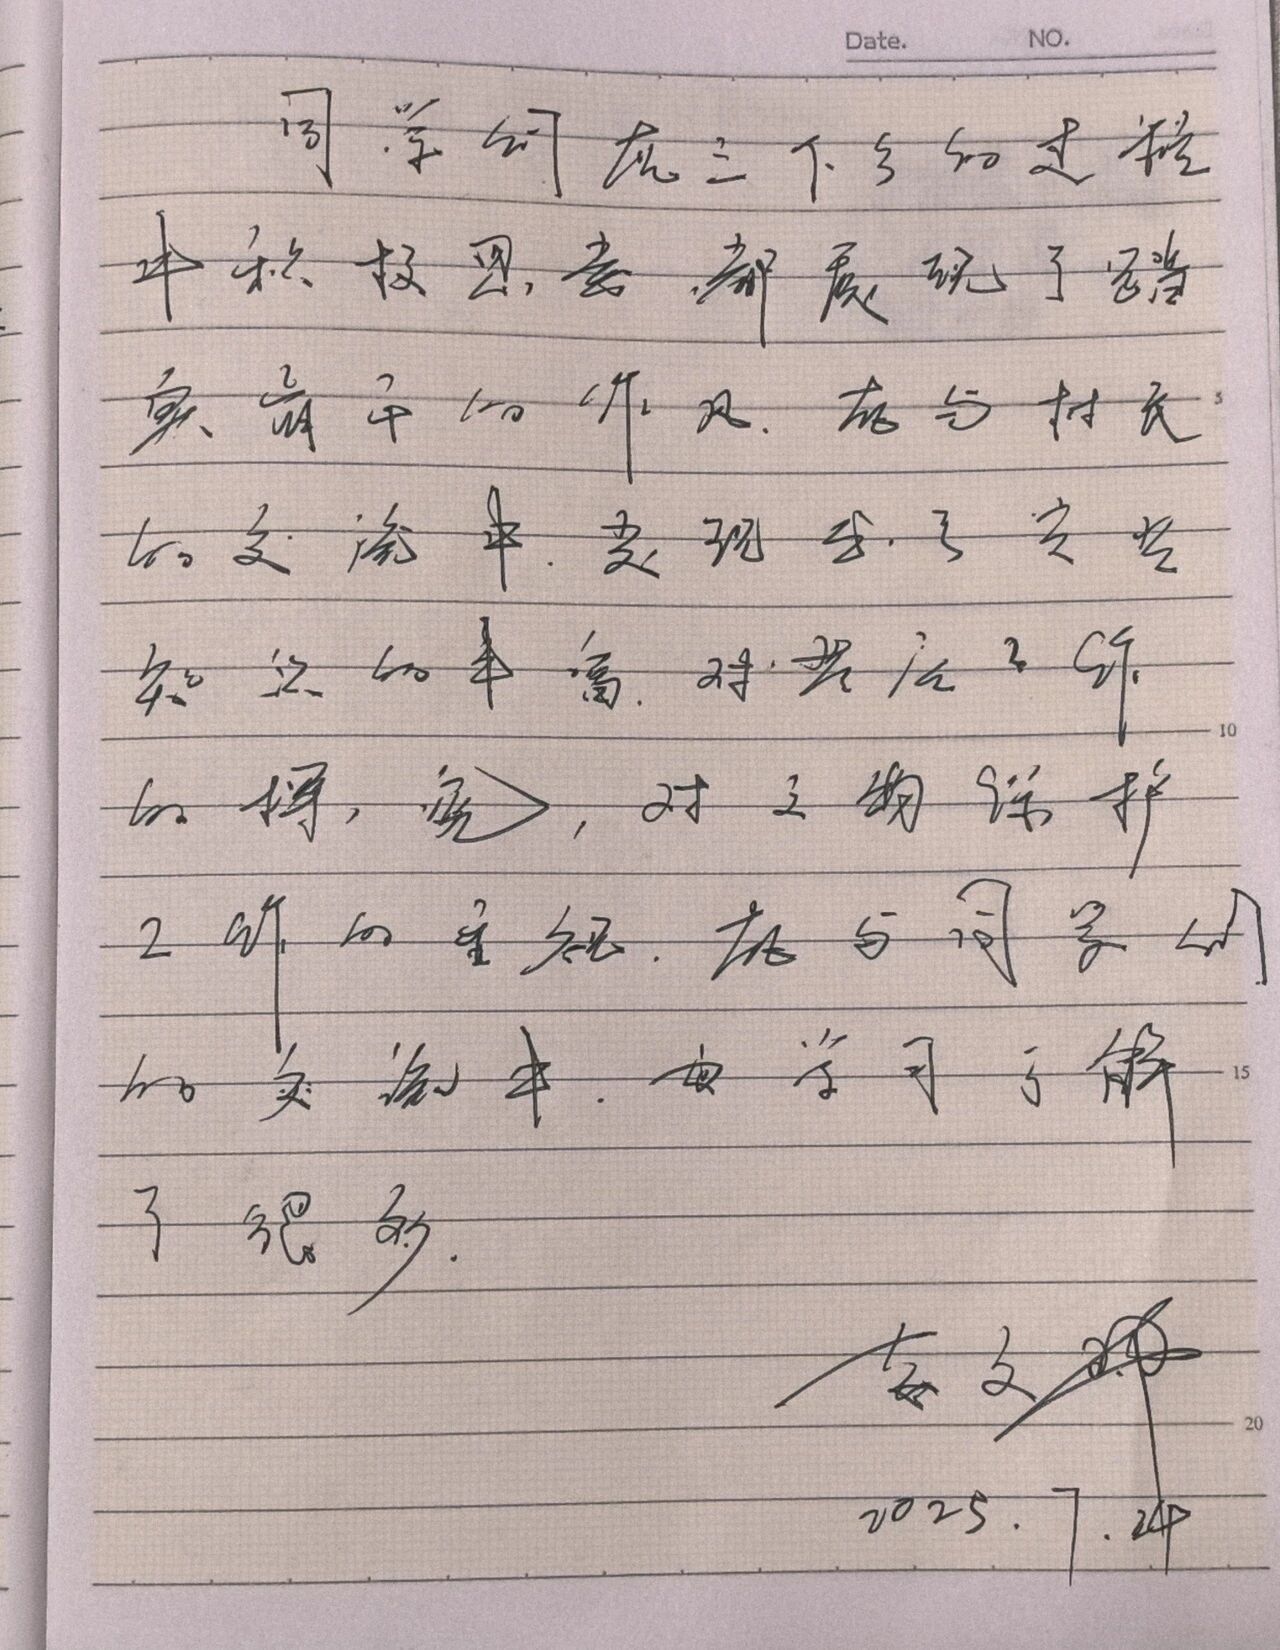 Date. NO.
同学们在三下乡的过程
中积极思考,都展现了踏
实肯干的作风.在与村民
的交流中.表现出了党史
知识的丰富.对普法工作
的探究,对文物保护
工作的重视.在与同学们
的交流中.也学习了解
了很多.
文
2025.7.24
5
10
15
20